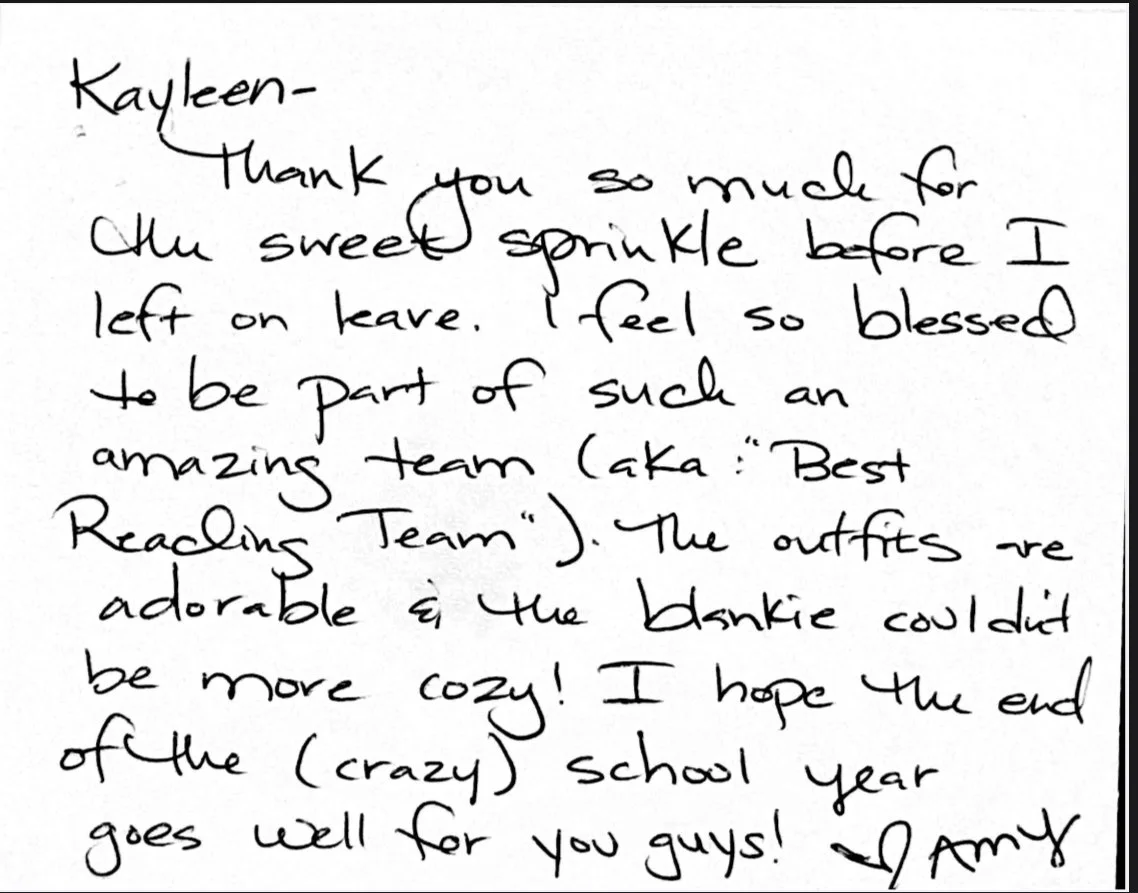 Kayleen-
Thank you so much for
the sweet sprinkle before I
left on leave. I feel so blessed
to be part of such an
amazing team (aka: "Best
Reading Team"). The outfits are
adorable & the blankie couldn't
be more cozy! I hope the end
of the (crazy) school year
goes well for you guys! ♡ Amy